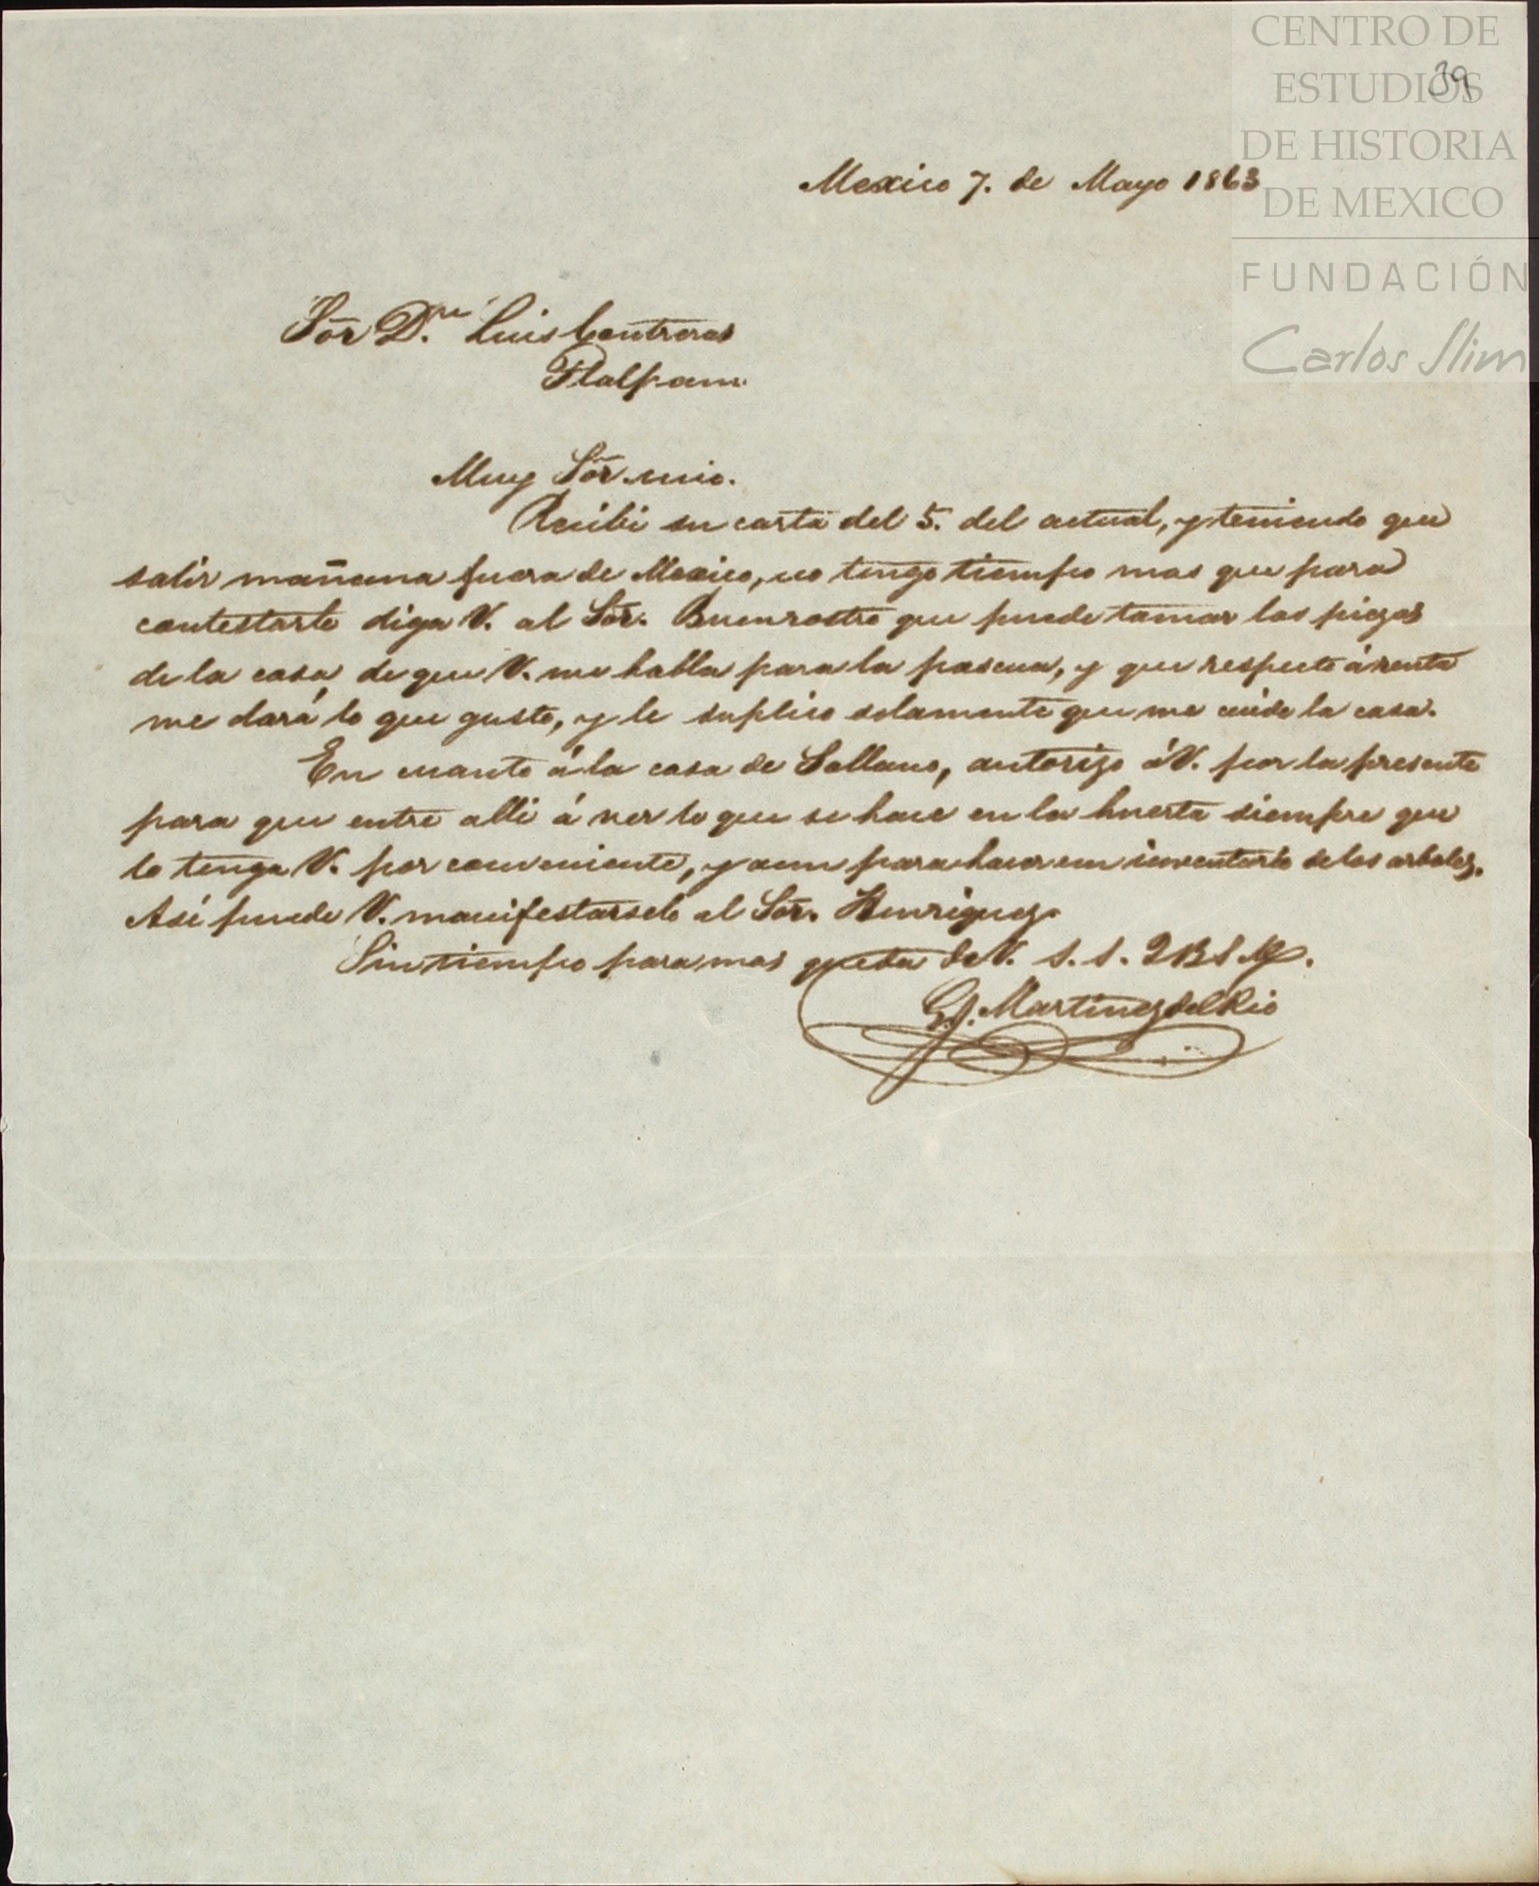 CENTRO DE
ESTUDIOS
DE HISTORIA
DE MEXICO
FUNDACIÓN
Carlos Slim
39
Mexico 7. de Mayo 1863
Sõr D.n Luis Contreras
Tlalpam.
Muy Sõr. mio.
Recibi su carta del 5. del actual, y teniendo que
salir mañana fuera de Mexico, no tengo tiempo mas que para
contestarle diga V. al Sõr. Buenrostro que puede tomar las piezas
de la casa de que V. me habla para la pascua, y que respecto á renta
me dará lo que guste, y le suplico solamente que me cuide la casa.
En cuanto á la casa de Sollano, autorizo á V. por la presente
para que entre alli á ver lo que se hace en la huerta siempre que
lo tenga V. por conveniente, y aun para hacer un inventario de los arboles.
Asi puede V. manifestarselo al Sõr. Henriquez.
Sin tiempo para mas queda de V. S. S. Q B S M.
G. J. Martinez del Rio